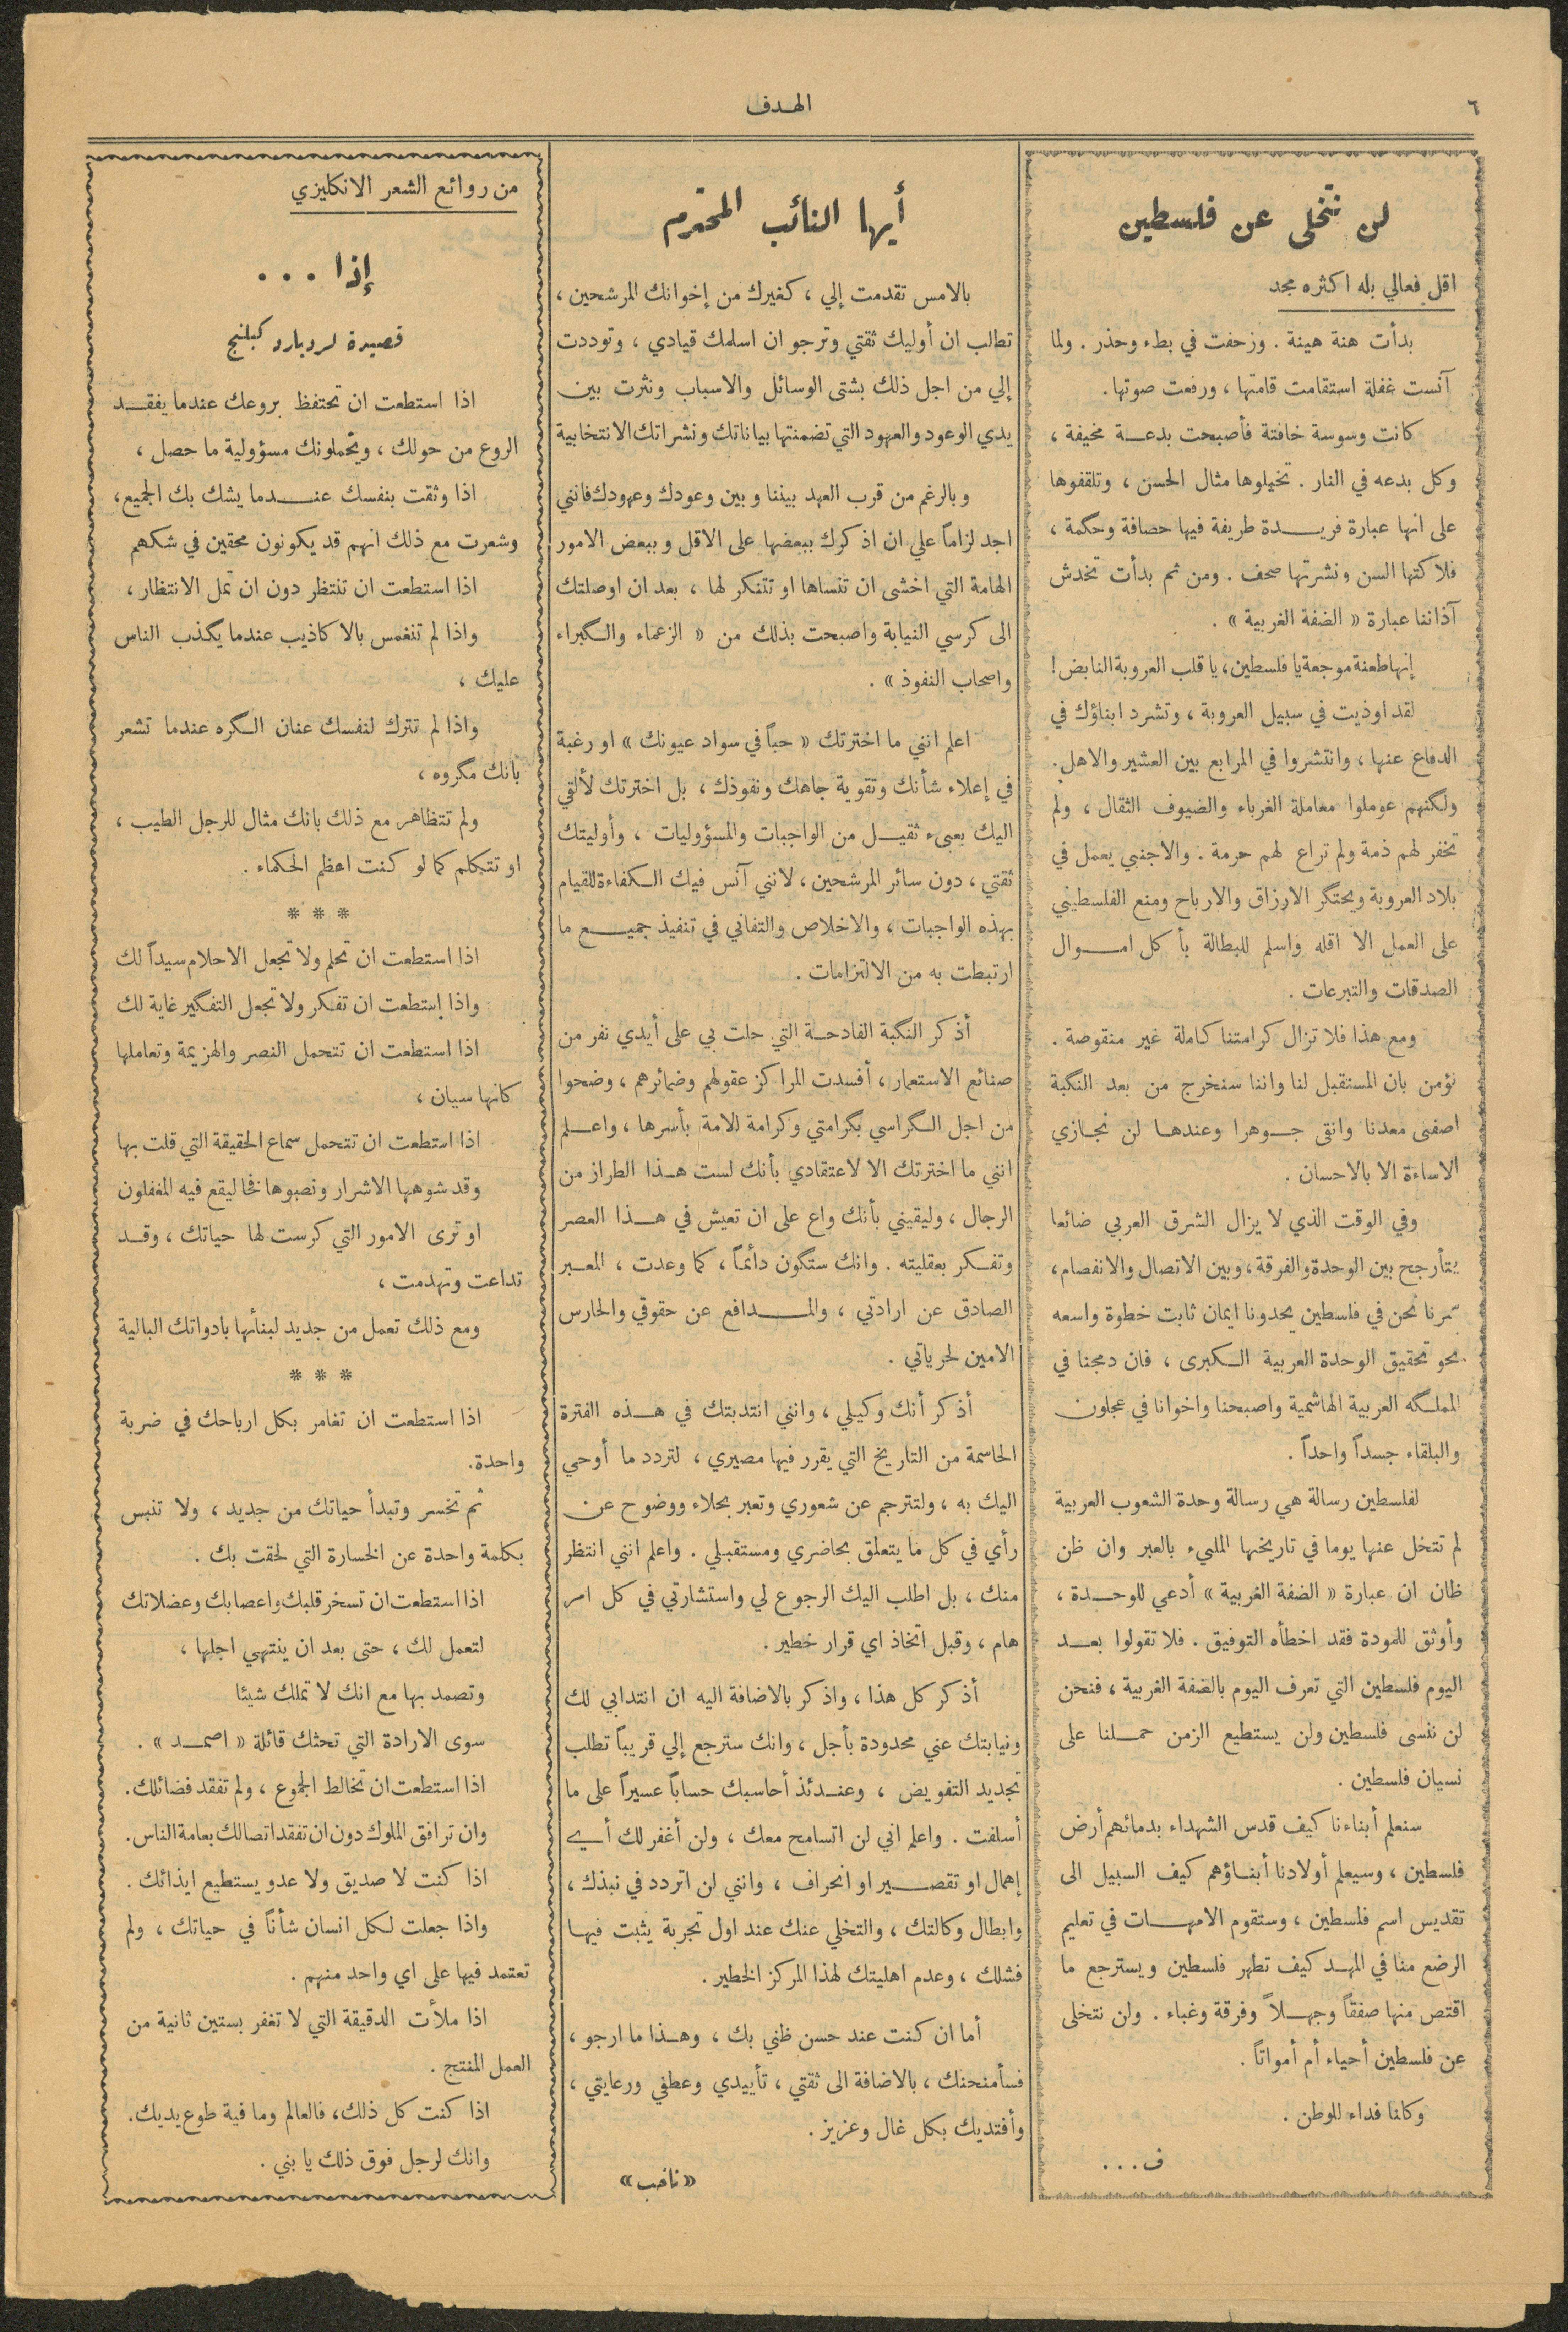 ٦
الهدف
لن نتخلى عن فلسطين
اقل فعالي بله اكثره مجد
بدأت هنة هينة . وزحفت في بطء وحذر . ولما
آنست غفلة استقامت قامتها ، ورفعت صوتها .
كانت وسوسة خافتة فأصبحت بدعة مخيفة ،
وكل بدعه في النار . تخيلوها مثال الحسن ، وتلقفوها
على انها عبارة فريدة طريفة فيها حصافة وحكمة ،
فلاكتها السن ونشرتها صحف . ومن ثم بدأت تخدش
آذاننا عبارة « الضفة الغربية » .
إنها طعنة موجعة يا فلسطين، يا قلب العروبة النابض !
لقد اوذيت في سبيل العروبة ، وتشرد ابناؤك في
الدفاع عنها ، وانتشروا في المرابع بين العشير والاهل .
ولكنهم عوملوا معاملة الغرباء والضيوف الثقال ، ولم
تخفر لهم ذمة ولم تراع لهم حرمة . والاجنبي يعمل في
بلاد العروبة ويحتكر الارزاق والارباح ومنع الفلسطيني
على العمل الا اقله واسلم للبطالة يأكل اموال
الصدقات والتبرعات .
ومع هذا فلا تزال كرامتنا كاملة غير منقوصة .
نؤمن بان المستقبل لنا واننا سنخرج من بعد النكبة
اصفى معدنا وانقى جوهرا وعندها لن نجازي
الاساءة الا بالاحسان .
وفي الوقت الذي لا يزال الشرق العربي ضائعا
يتأرجح بين الوحدة والفرقة، وبين الاتصال والانفصام،
سرنا نحن في فلسطين يحدونا ايمان ثابت خطوة واسعه
نحو تحقيق الوحدة العربية الكبرى ، فان دمجنا في
المملكه العربية الهاشمية واصبحنا واخوانا في عجلون
والبلقاء جسداً واحداً .
لفلسطين رسالة هي رسالة وحدة الشعوب العربية
لم تتخل عنها يوما في تاريخها المليء بالعبر وان ظن
ظان ان عبارة « الضفة الغربية » أدعي للوحدة ،
وأوثق للمودة فقد اخطأه التوفيق . فلا تقولوا بعد
اليوم فلسطين التي تعرف اليوم بالضفة الغربية ، فنحن
لن ننسى فلسطين ولن يستطيع الزمن حملنا على
نسيان فلسطين .
سنعلم أبناءنا كيف قدس الشهداء بدمائهم أرض
فلسطين ، وسيعلم أولادنا أبناؤهم كيف السبيل الى
تقديس اسم فلسطين ، وستقوم الامهات في تعليم
الرضع منا في المهد كيف تطهر فلسطين ويسترجع ما
اقتص منها صفقاً وجهلاً وفرقة وغباء . ولن نتخلى
عن فلسطين أحياء أم أمواتاً .
وكلنا فداء للوطن .
ف...
أيها النائب المحترم
بالامس تقدمت إلي ، كغيرك من إخوانك المرشحين ،
تطالب ان أوليك ثقتي وترجو ان اسلمك قيادي ، وتوددت
إلي من اجل ذلك بشتى الوسائل والاسباب ونثرت بين
يدي الوعود والعهود التي تضمنتها بياناتك ونشراتك الانتخابية
وبالرغم من قرب العهد بيننا وبين وعودك وعهودك فانني
اجد لزاماً علي ان اذكرك ببعضها على الاقل وببعض الامور
الهامة التي اخشى ان تنساها او تتنكر لها ، بعد ان اوصلتك
الى كرسي النيابة واصبحت بذلك من « الزعماء والكبراء
واصحاب النفوذ » .
اعلم انني ما اخترتك « حباً في سواد عيونك » او رغبة
في إعلاء شأنك وتقوية جاهك ونفوذك ، بل اخترتك لألقي
اليك بعبىء ثقيل من الواجبات والمسؤوليات ، وأوليتك
ثقتي ، دون سائر المرشحين ، لانني آنس فيك الكفاءة للقيام
بهذه الواجبات ، والاخلاص والتفاني في تنفيذ جميع ما
ارتبطت به من الالتزامات .
أذكر النكبة الفادحة التي حلت بي على أيدي نفر من
صنائع الاستعمار ، أفسدت المراكز عقولهم وضمائرهم ، وضحوا
من اجل الكراسي بكرامتي وكرامة الامة بأسرها ، واعلم
انني ما اخترتك الا لاعتقادي بأنك لست هذا الطراز من
الرجال ، وليقيني بأنك واع على ان تعيش في هذا العصر
وتفكر بعقليته . وانك ستكون دائماً ، كما وعدت ، المعبر
الصادق عن ارادتي ، والمدافع عن حقوقي والحارس
الامين لحرياتي .
أذكر أنك وكيلي ، وانني انتدبتك في هذه الفترة
الحاسمة من التاريخ التي يقرر فيها مصيري ، لتردد ما أوحي
اليك به ، ولتترجم عن شعوري وتعبر بجلاء ووضوح عن
رأي في كل ما يتعلق بحاضري ومستقبلي . واعلم انني انتظر
منك ، بل اطلب اليك الرجوع لي واستشارتي في كل امر
هام ، وقبل اتخاذ اي قرار خطير .
أذكر كل هذا ، واذكر بالاضافة اليه ان انتدابي لك
ونيابتك عني محدودة بأجل ، وانك سترجع إلي قريباً تطلب
تجديد التفويض ، وعندئذ أحاسبك حساباً عسيراً على ما
أسلفت . واعلم اني لن اتسامح معك ، ولن أغفر لك أي
إهمال او تقصير او انحراف ، وانني لن اتردد في نبذك ،
وابطال وكالتك ، والتخلي عنك عند اول تجربة يثبت فيها
فشلك ، وعدم اهليتك لهذا المركز الخطير .
أما ان كنت عند حسن ظني بك ، وهذا ما ارجو ،
فسأمنحنك ، بالاضافة الى ثقتي ، تأييدي وعطفي ورعايتي ،
وأفتديك بكل غال وعزيز .
«ناخب»
من روائع الشعر الانكليزي
إذا ...
قصيدة لرديارد كبلنج
اذا استطعت ان تحتفظ بروعك عندما يفقد
الروع من حولك ، ويحملونك مسؤولية ما حصل ،
اذا وثقت بنفسك عندما يشك بك الجميع،
وشعرت مع ذلك انهم قد يكونون محقين في شكهم
اذا استطعت ان تنتظر دون ان تمل الانتظار ،
واذا لم تنغمس بالاكاذيب عندما يكذب الناس
عليك ،
واذا لم تترك لنفسك عنان الكره عندما تشعر
بانك مكروه ،
ولم تتظاهر مع ذلك بانك مثال للرجل الطيب ،
او تتكلم كما لو كنت اعظم الحكماء .
* * *
اذا استطعت ان تحلم ولا تجعل الاحلام سيداً لك
واذا إستطعت ان تفكر ولا تجعل التفكير غاية لك
اذا استطعت ان تتحمل النصر والهزيمة وتعاملها
كانها سيان ،
اذا استطعت ان تتحمل سماع الحقيقة التي قلت بها
وقد شوهها الاشرار ونصبوها فخا ليقع فيه المغفلون
او ترى الامور التي كرست لها حياتك ، وقد
تداعت وتهدمت ،
ومع ذلك تعمل من جديد لبنائها بادواتك البالية
* * *
اذا استطعت ان تغامر بكل ارباحك في ضربة
واحدة.
ثم تخسر وتبدأ حياتك من جديد ، ولا تنبس
بكلمة واحدة عن الخسارة التي لحقت بك .
اذا استطعت ان تسخر قلبك واعصابك وعضلاتك
لتعمل لك ، حتى بعد ان ينتهي اجلها ،
وتصمد بها مع انك لا تملك شيئا
سوى الارادة التي تحثك قائلة « اصمد » .
اذا استطعت ان تخالط الجموع ، ولم تفقد فضائلك .
وان ترافق الملوك دون ان تفقد اتصالك بعامة الناس.
اذا كنت لا صديق ولا عدو يستطيع ايذائك .
واذا جعلت لكل انسان شأناً في حياتك ، ولم
تعتمد فيها على اي واحد منهم .
اذا ملأت الدقيقة التي لا تغفر بستين ثانية من
العمل المنتج .
اذا كنت كل ذلك، فالعالم وما فية طوع يديك.
وانك لرجل فوق ذلك يا بني .